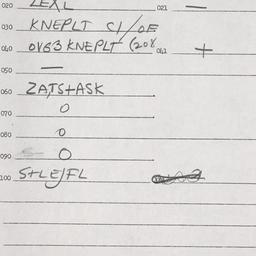 020 LEXL 021 —
030 KNEPLT C1/OF
040 OVB3 KNEPLT (20% 041 +
050 —
060 ZATS+ASK
070 O
080 O
090 O
100 S+LE/FL